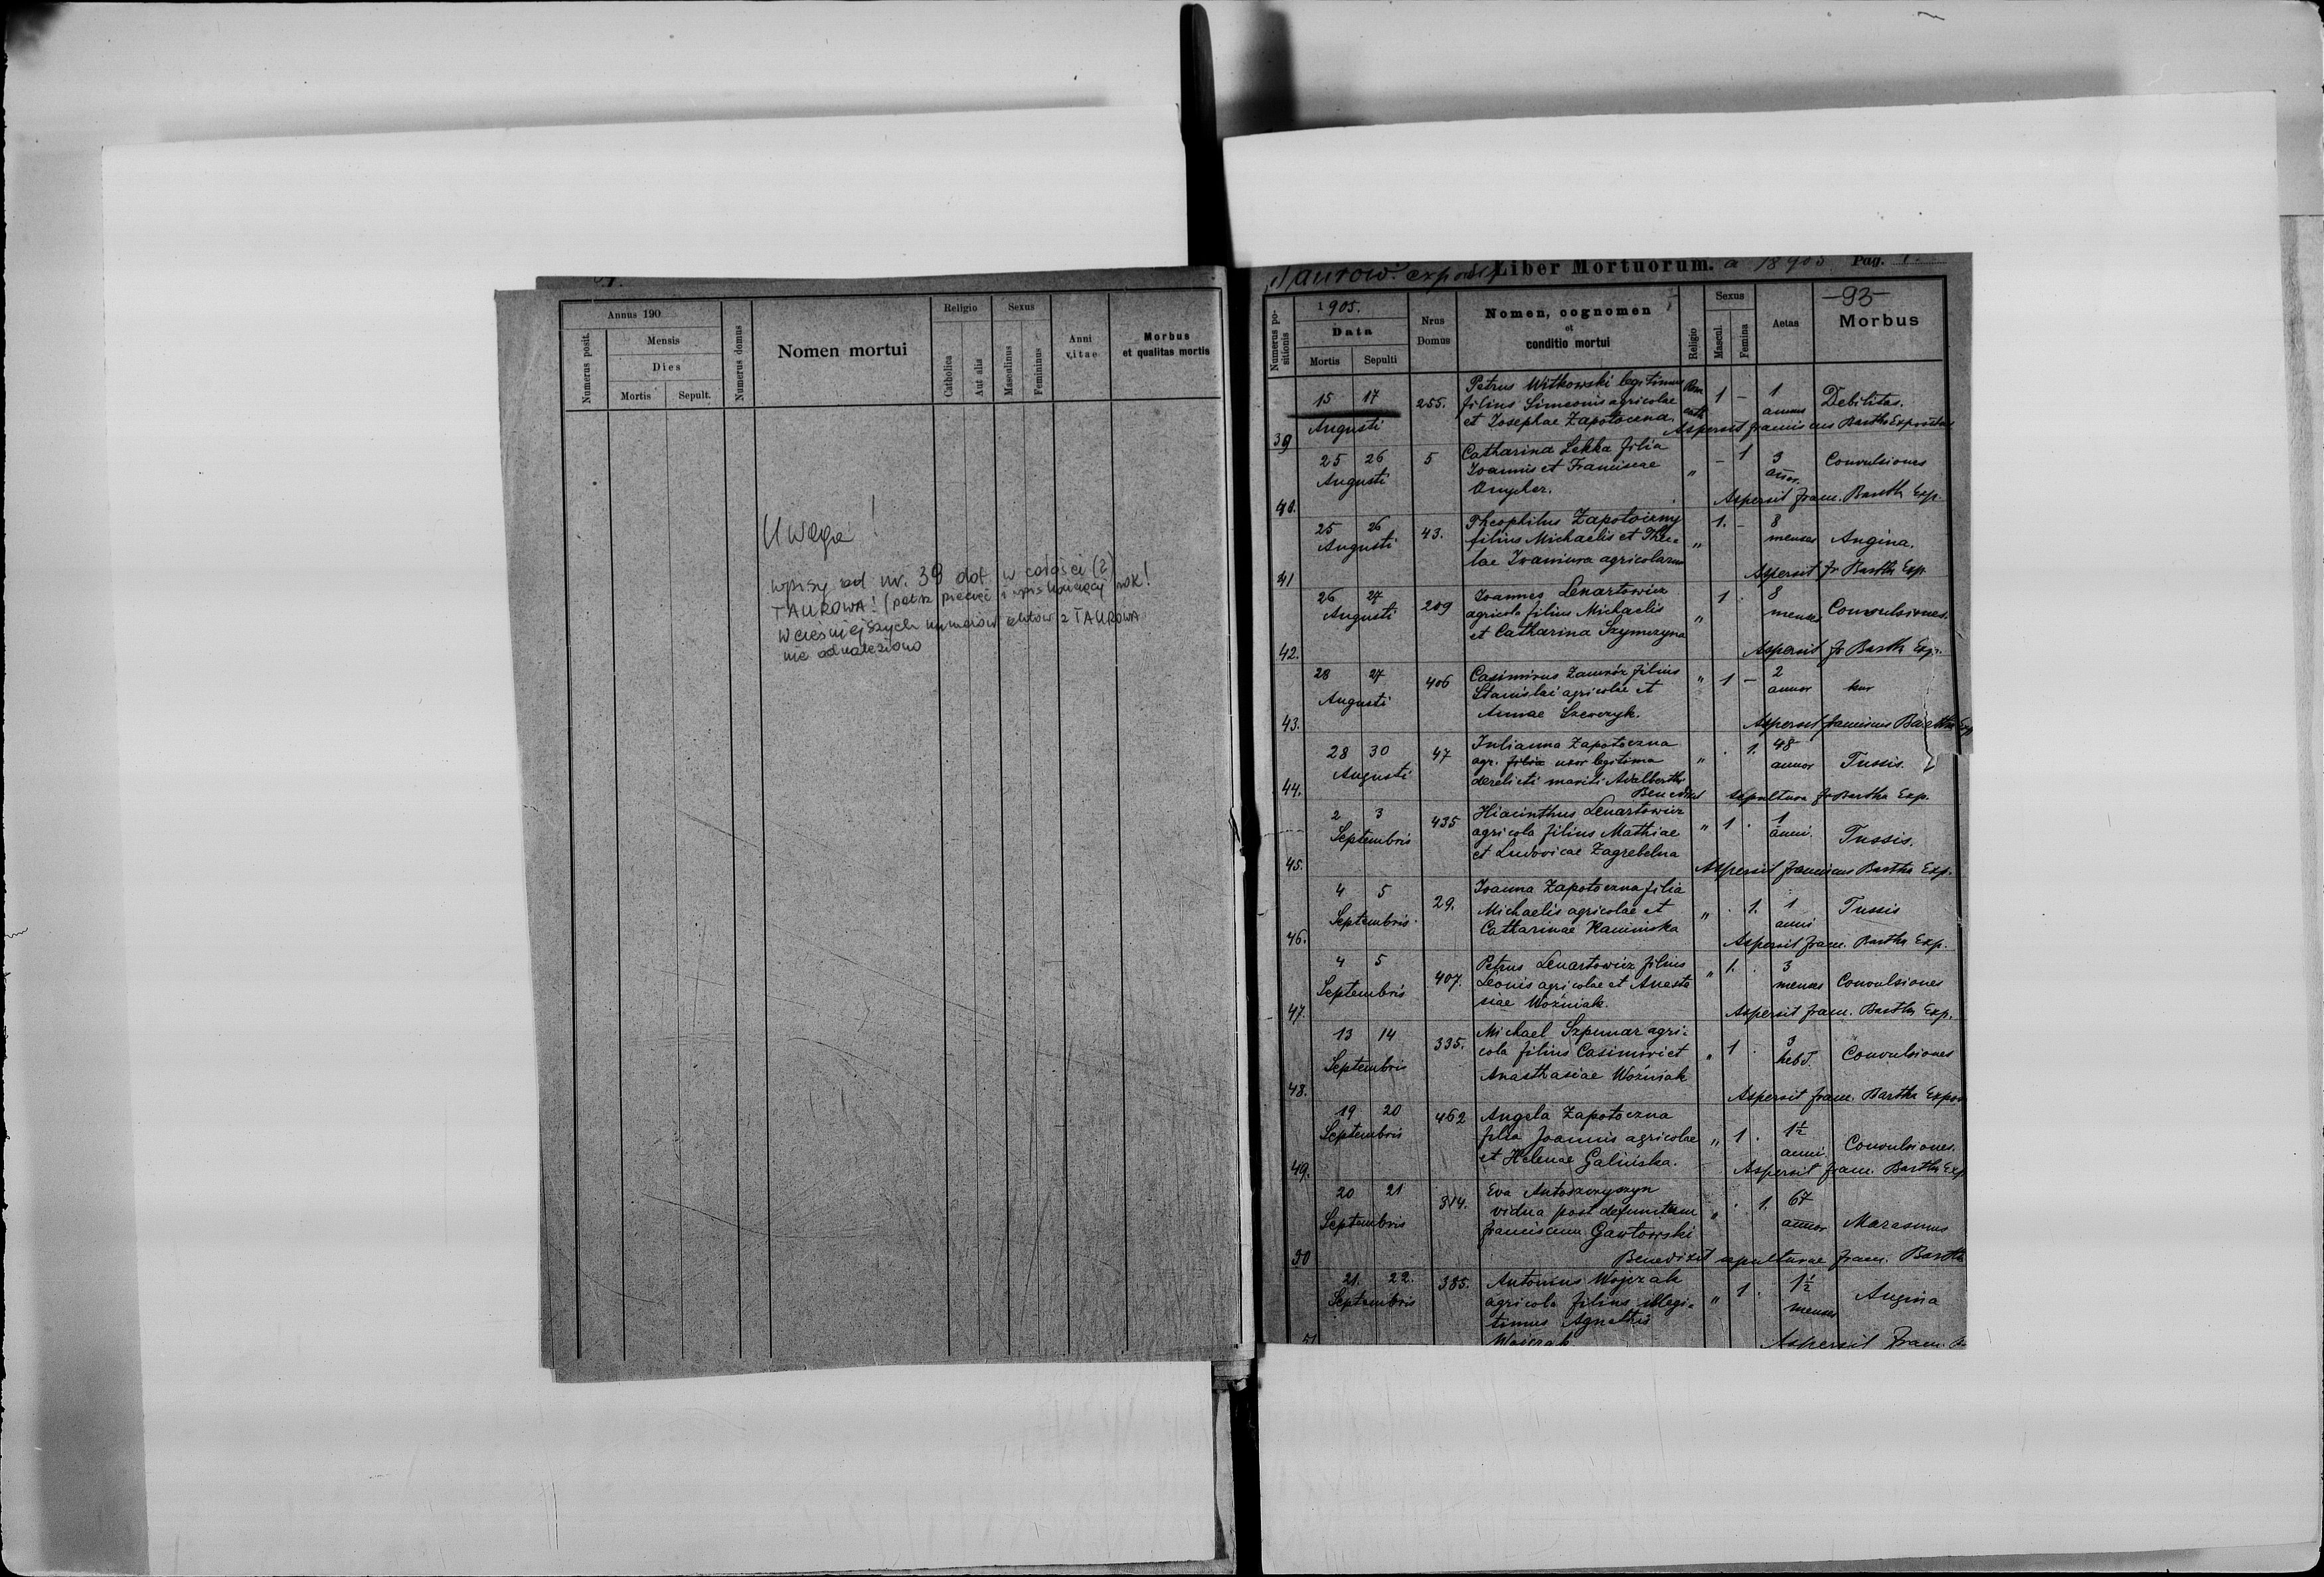 Annus 190
Numerus posit.
Mensis
Dies
Mortis
Sepult.
Numerus domus
Nomen mortui
Religio
Catholica
Aut alia
Sexus
Masculinus
Femininus
Anni
vitae
Morbus
et qualitas mortis
Uwaga!
wpisy od nr. 39 dot. w całości (?)
TAUROWA! (patrz pieczęć i wpis kończący rok!
wcześniejszych numerów aktów z TAUROWA
nie odnaleziono
Liber Mortuorum. a 18 905 Pag. 1.
-93-
Numerus po-
sitionis
1905.
Data
Mortis
Sepulti
Nrus
Domus
Nomen, cognomen
et
conditio mortui
Religio
Sexus
Mascul.
Femina
Aetas
Morbus
39
15 17
Augusti
255.
Petrus Witkowski legitimus
filius Simeonis agricolae
et Josephae Zapotoczna
Rm
cath
1 –
1
annus
Debilitas.
Aspersit Franciscus Bartha Expositus
40.
25 26
Augusti
5
Catharina Lekka filia
Joannis et Franciscae
" – 1
3
anor.
Convulsiones
Aspersit Franc. Bartha Exp.
41
25 26
Augusti
43.
Theophilus Zapotoczny
filius Michaelis et Thec-
lae Iwaniura agricolarum
" 1. –
8
menses
Angina.
Aspersit Fr Bartha Exp.
42.
26 27
Augusti
209
Joannes Lenartowicz
agricola filius Michaelis
et Catharina Szymczyna
" 1 .
8
menses
Convulsiones.
Aspersit Fr Bartha Exp.
43.
28 27
Augusti
406
Casimirus Zamróz filius
Stanislai agricolae et
Annae Szewczyk.
" 1 –
2
annor
Aspersit Franciscus Bartha Exp
44.
28 30
Augusti
47
Julianna Zapotoczna
agr. filia uxor legitima
derelicti mariti Adalberthi
" . 1.
48
annor
Tussis.
Benedixit sepulturae Fr Bartha Exp.
45.
2 3
Septembris
435
Hiacinthus Lenartowicz
agricola filius Mathiae
et Ludovicae Zagrebelna
" 1 .
1
anni.
Tussis.
Aspersit Franciscus Bartha Exp.
46.
4 5
Septembris.
29.
Joanna Zapotoczna filia
Michaelis agricolae et
Catharinae Kaminska
" . 1.
1
anni
Tussis
Aspersit Franc. Bartha Exp.
47.
4 5
Septembris
407.
Petrus Lenartowicz filius
Leonis agricolae et Anasta
siae Woźniak.
" 1. .
3
menses
Convulsiones
Aspersit Franc. Bartha Exp.
48.
13 14
Septembris
335.
Michael Szpunar agri-
cola filius Casimiri et
Anasthasiae Woźniak
" 1 .
3
hebd.
Convulsiones
Aspersit Franc. Bartha Expos
49.
19 20
Septembris
462
Angela Zapotoczna
filia Joannis agricolae
et Helenae Galińska.
" 1 .
1½
anni.
Convulsiones.
Aspersit Franc. Bartha Exp
50
20 21
Septembris
314.
Eva Antoszczyszyn
vidua post defunctum
Franciscum Gawłowski
" . 1.
67
annor
Marasmus
Benedixit sepulturae Franc. Bartha
51
21. 22.
Septembris
385.
Antonius Wojczak
agricola filius illegi-
timus Agnethis
Wojczak.
" 1 .
1½
menses
Angina
Aspersit Franc. B